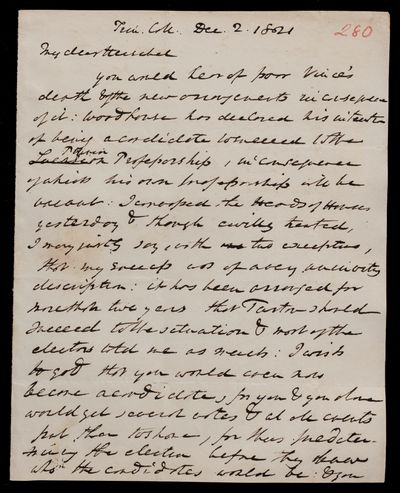 Trin. Coll. Dec 2. 1821
280
My dear Herschel
you would hear of poor Vince's
death & of the new arrangements in consequence
of it: Woodhouse has declared his intention
of being a candidate to succeed to the
Plumian
Lucasian Professorship, in consequence
of which his own Professorship will be
vacant: I canvassed the Heads of Houses
yesterday & though civilly treated,
I may justly say, with two exceptions,
that my success was of a very
description: it has been arranged for
more than two years that Turton should
succeed to the situation & most of the
electors told me as much: I wish
to god that you would even now
become a candidate, for you & you alone
would get several votes & at all events
put them to shame, for thus predeter-
mining the election before they knew
who the candidates would be: & you